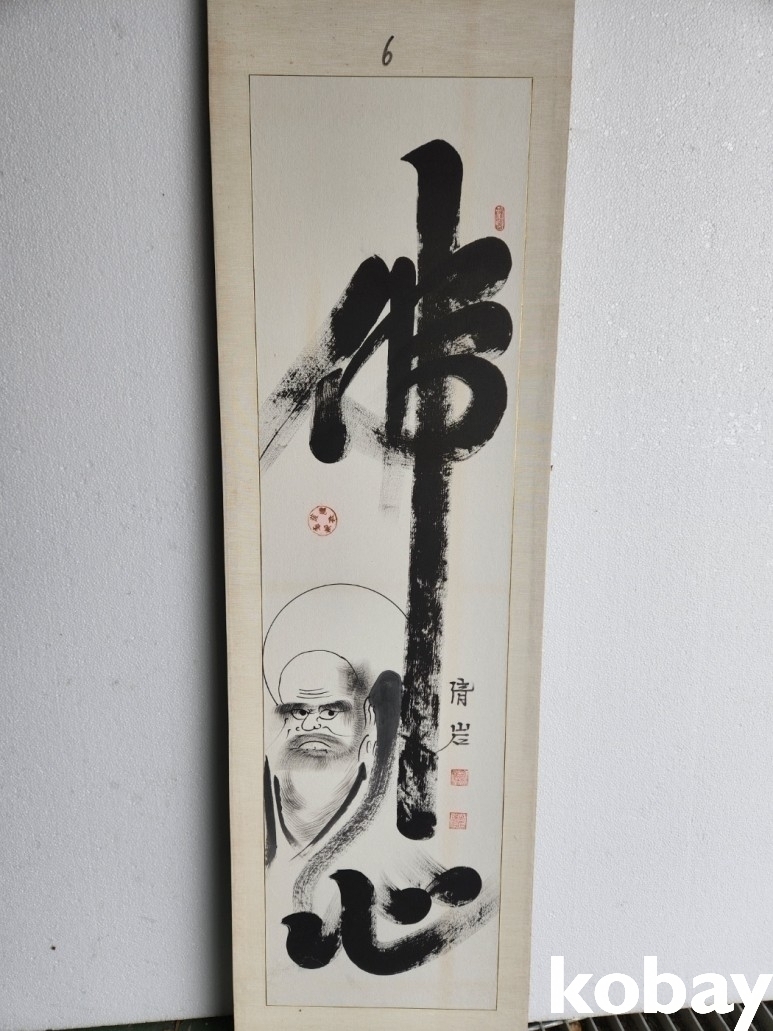 6
佛
心
靑岩
kobay